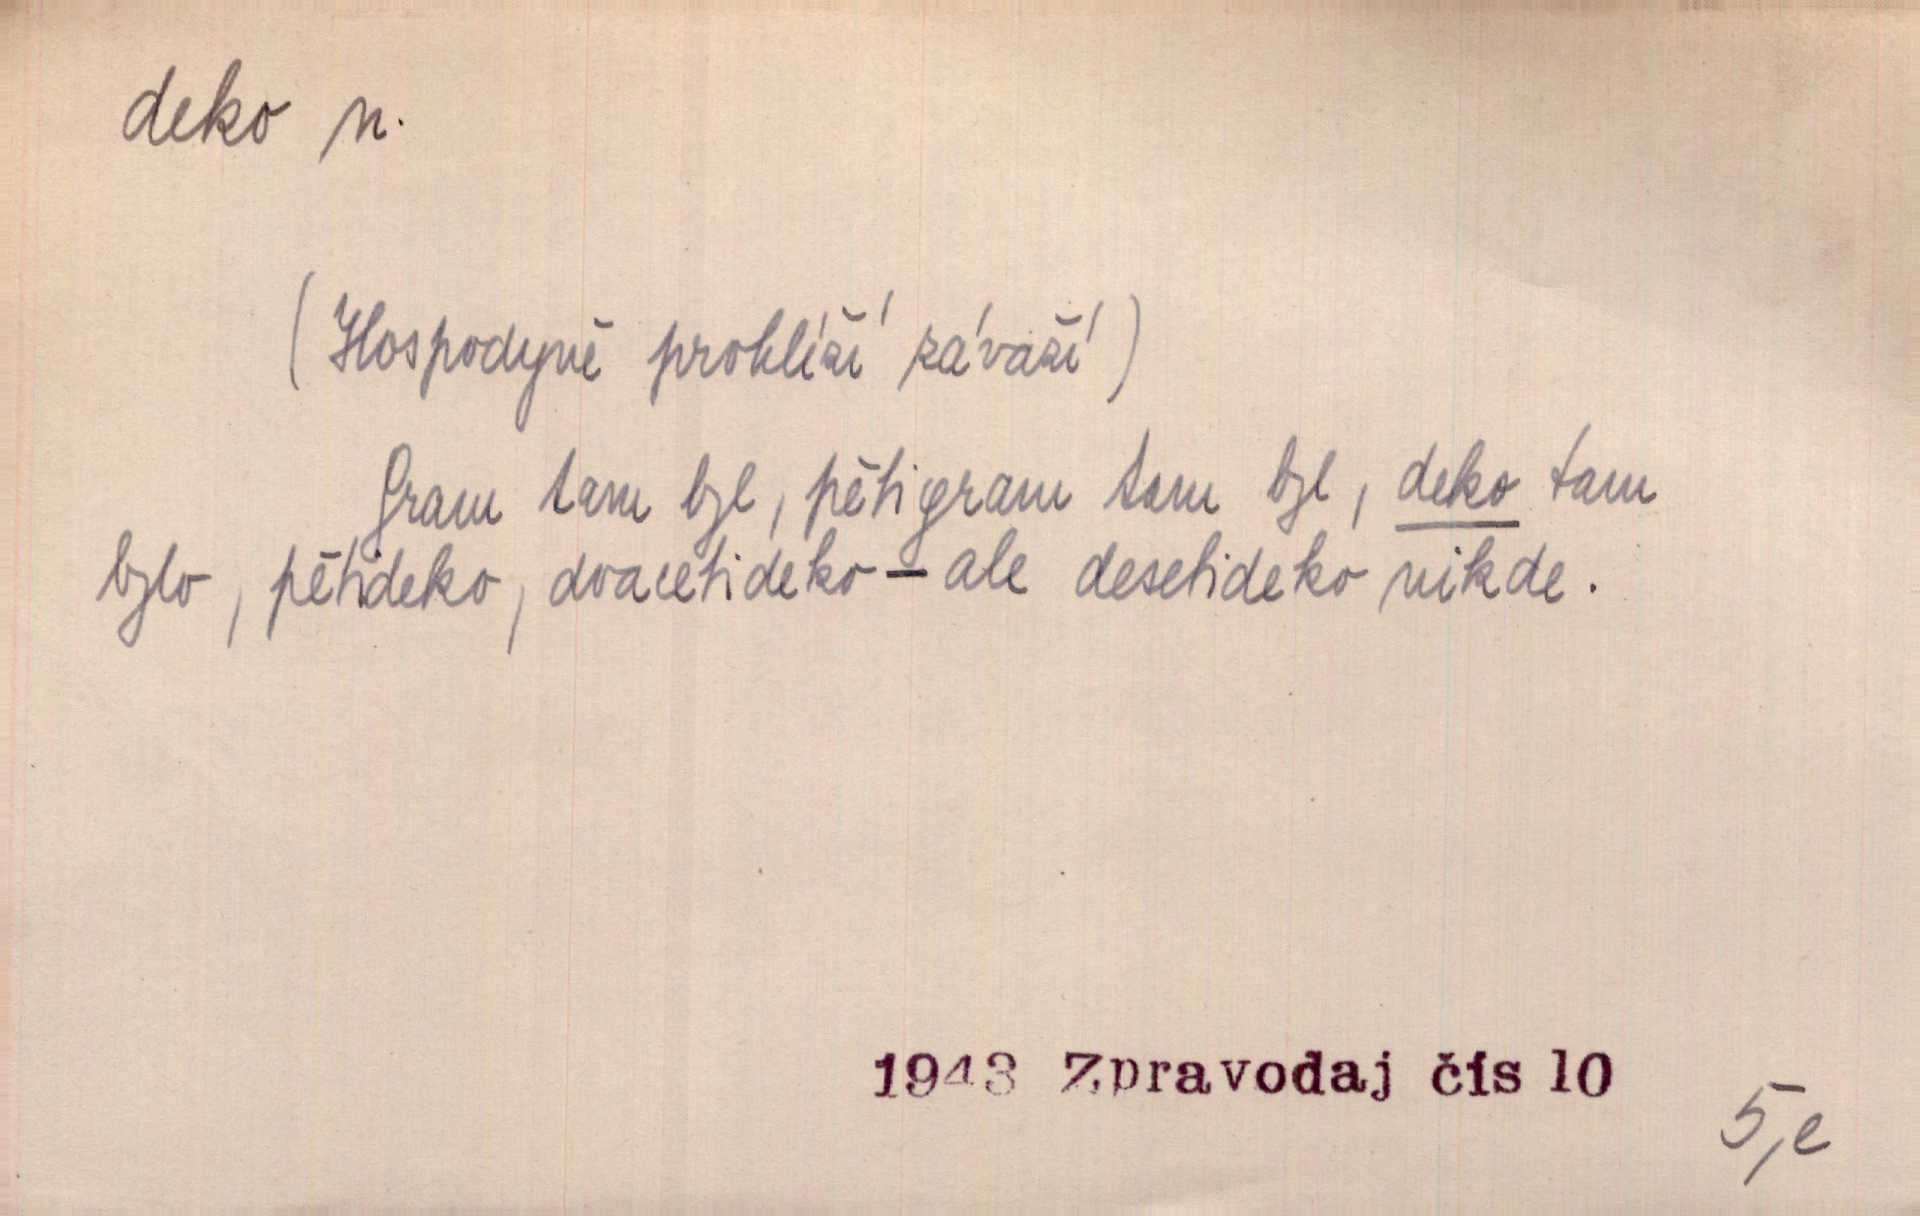 deko n.
(Hospodyně prohlíží závaží)
Gram tam byl, pětigram tam byl, deko tam
bylo, pětideko, dvacetideko – ale desetideko nikde.
1943 Zpravodaj čís 10
5,e